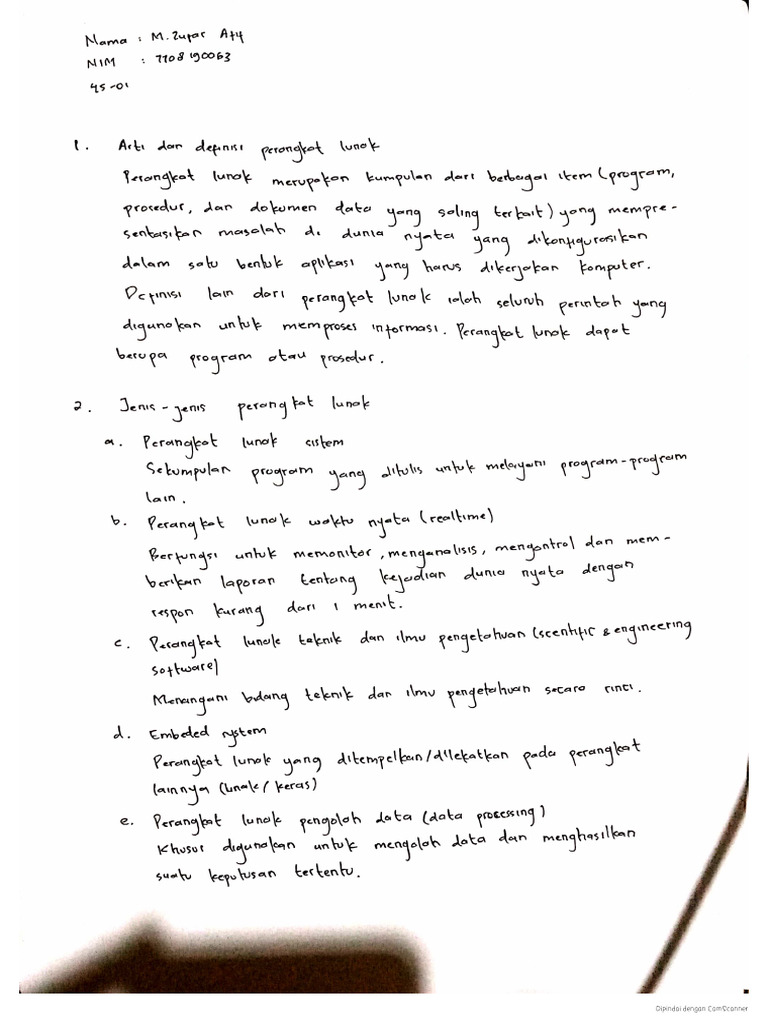 Nama : M. Zufar Atij
NIM : 7708190063
45-01
1. Arti dan definisi perangkat lunak
Perangkat lunak merupakan kumpulan dari berbagai item (program,
procedur, dan dokumen data yang saling terkait) yang mempre-
sentasikan masalah di dunia nyata yang dikonfigurasikan
dalam satu bentuk aplikasi yang harus dikerjakan komputer.
Definisi lain dari perangkat lunak ialah seluruh perintah yang
digunakan untuk memproses informasi. Perangkat lunak dapat
berupa program atau prosedur.
2. Jenis-jenis perangkat lunak
a. Perangkat lunak sistem
Sekumpulan program yang ditulis untuk melayani program-program
lain.
b. Perangkat lunak waktu nyata (realtime)
Berfungsi untuk memonitor, menganalisis, mengontrol dan mem-
berikan laporan tentang kejadian dunia nyata dengan
respon kurang dari 1 menit.
c. Perangkat lunak teknik dan ilmu pengetahuan (scentific & engineering
software)
Menangani bidang teknik dan ilmu pengetahuan secara rinci.
d. Embeded system
Perangkat lunak yang ditempelkan/dilekatkan pada perangkat
lainnya (lunak/keras)
e. Perangkat lunak pengolah data (data processing)
Khusus digunakan untuk mengolah data dan menghasilkan
suatu keputusan tertentu.
Dipindai dengan CamScanner